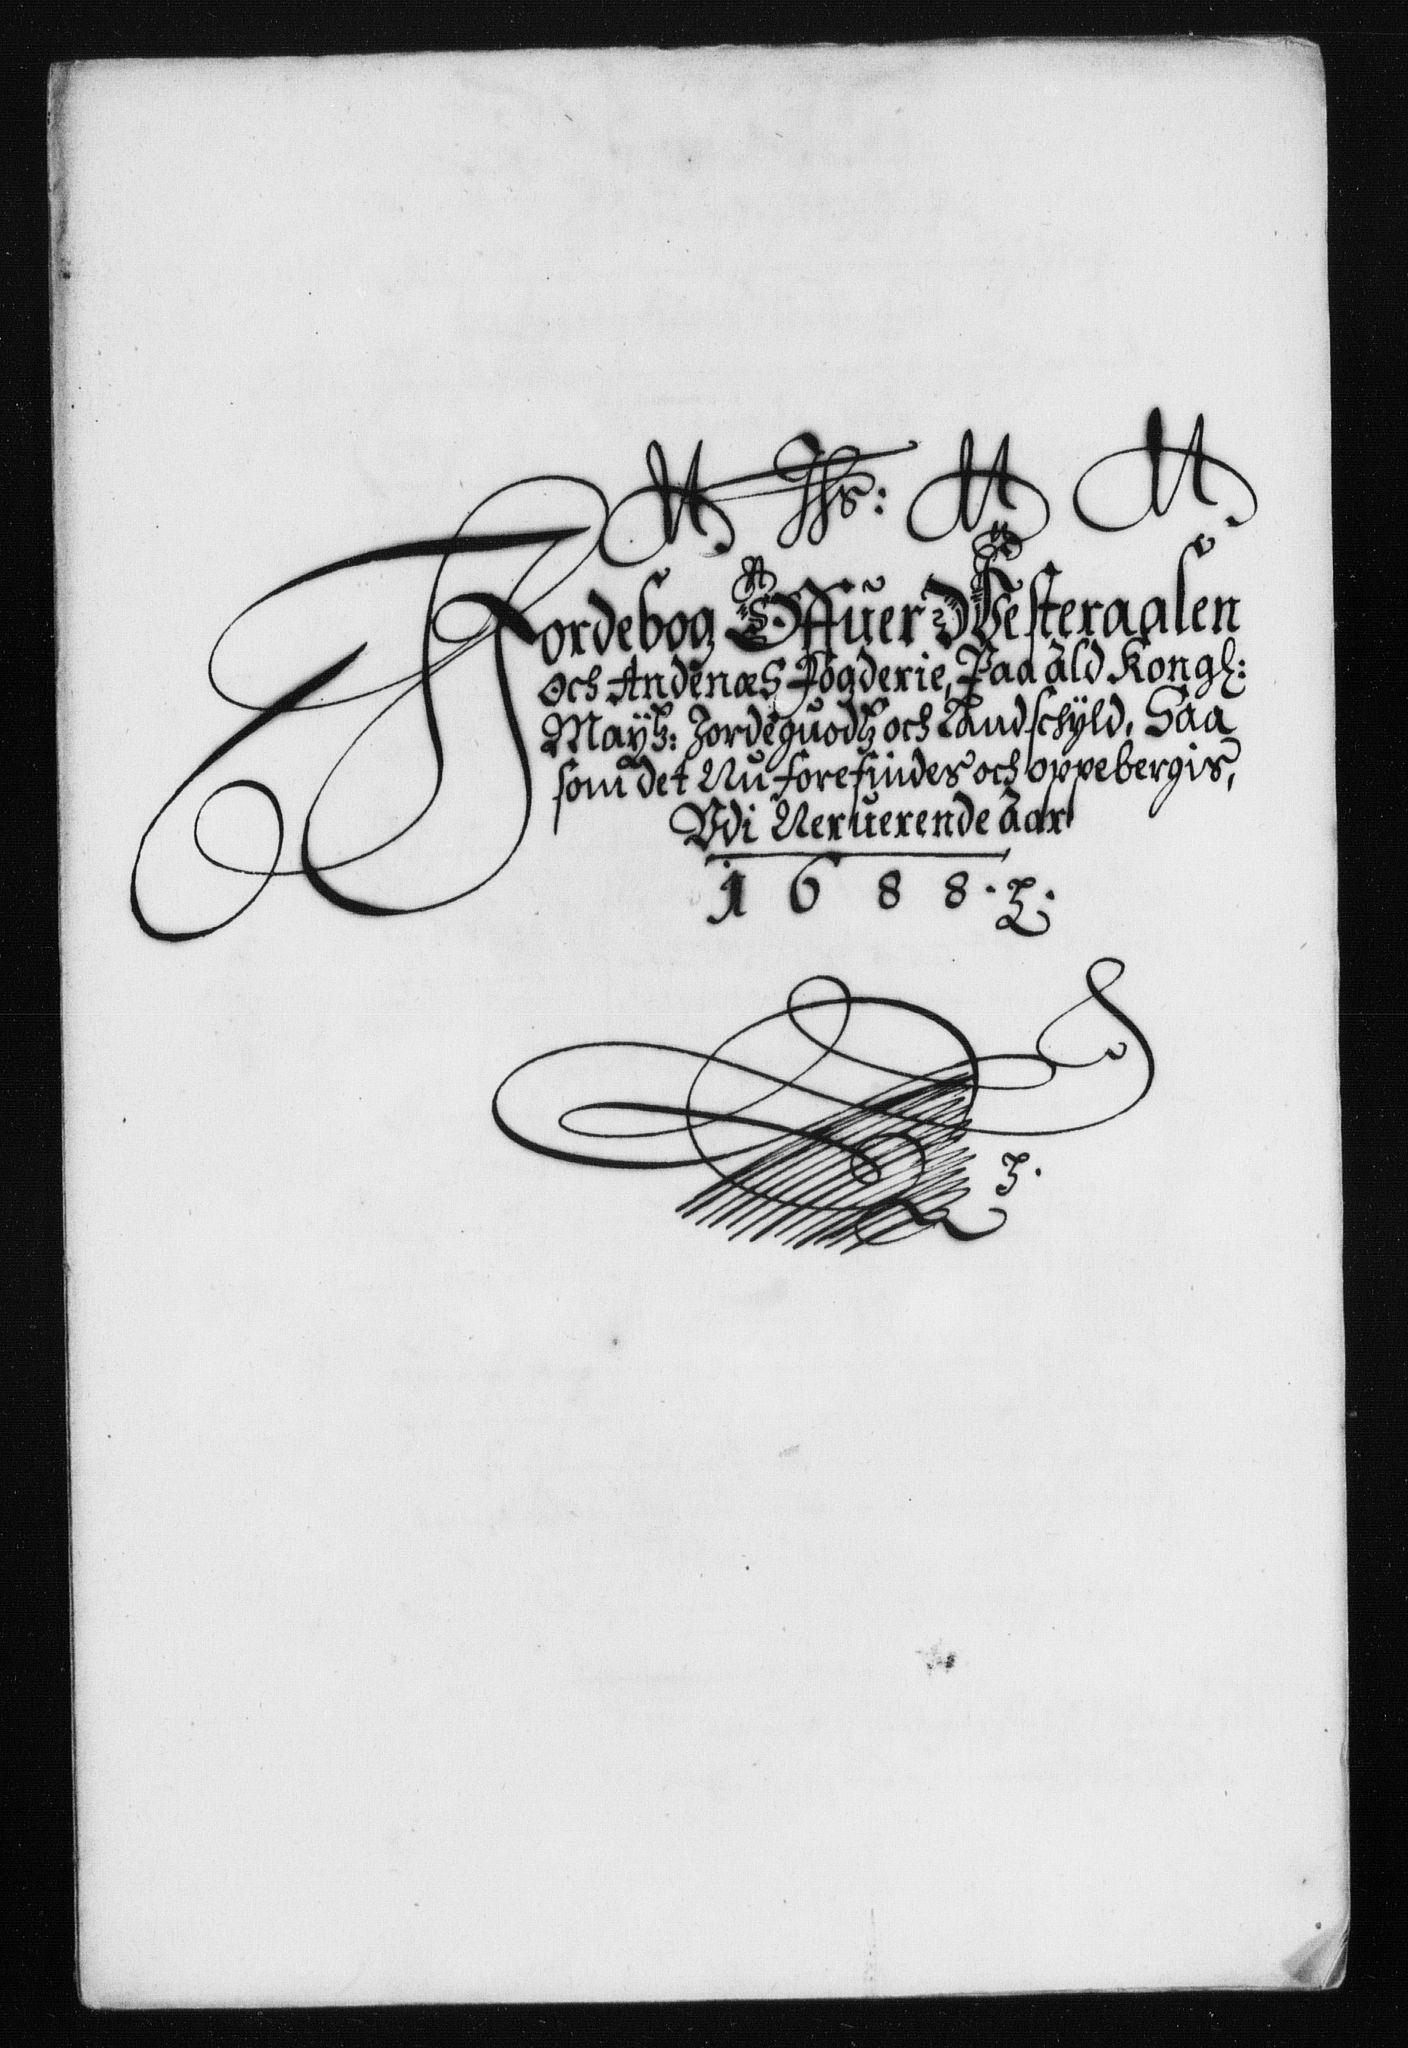 Jhs:
Jordebog Offuer Westeraalen
och Andenæs Fogderie, Paa ald Kongl:
Mayᵗᶻ: Jordeguodtz och Landschyld, Saa
som det Nu forefindes och oppebergis,
Vdi Neruerende Aar
1688.